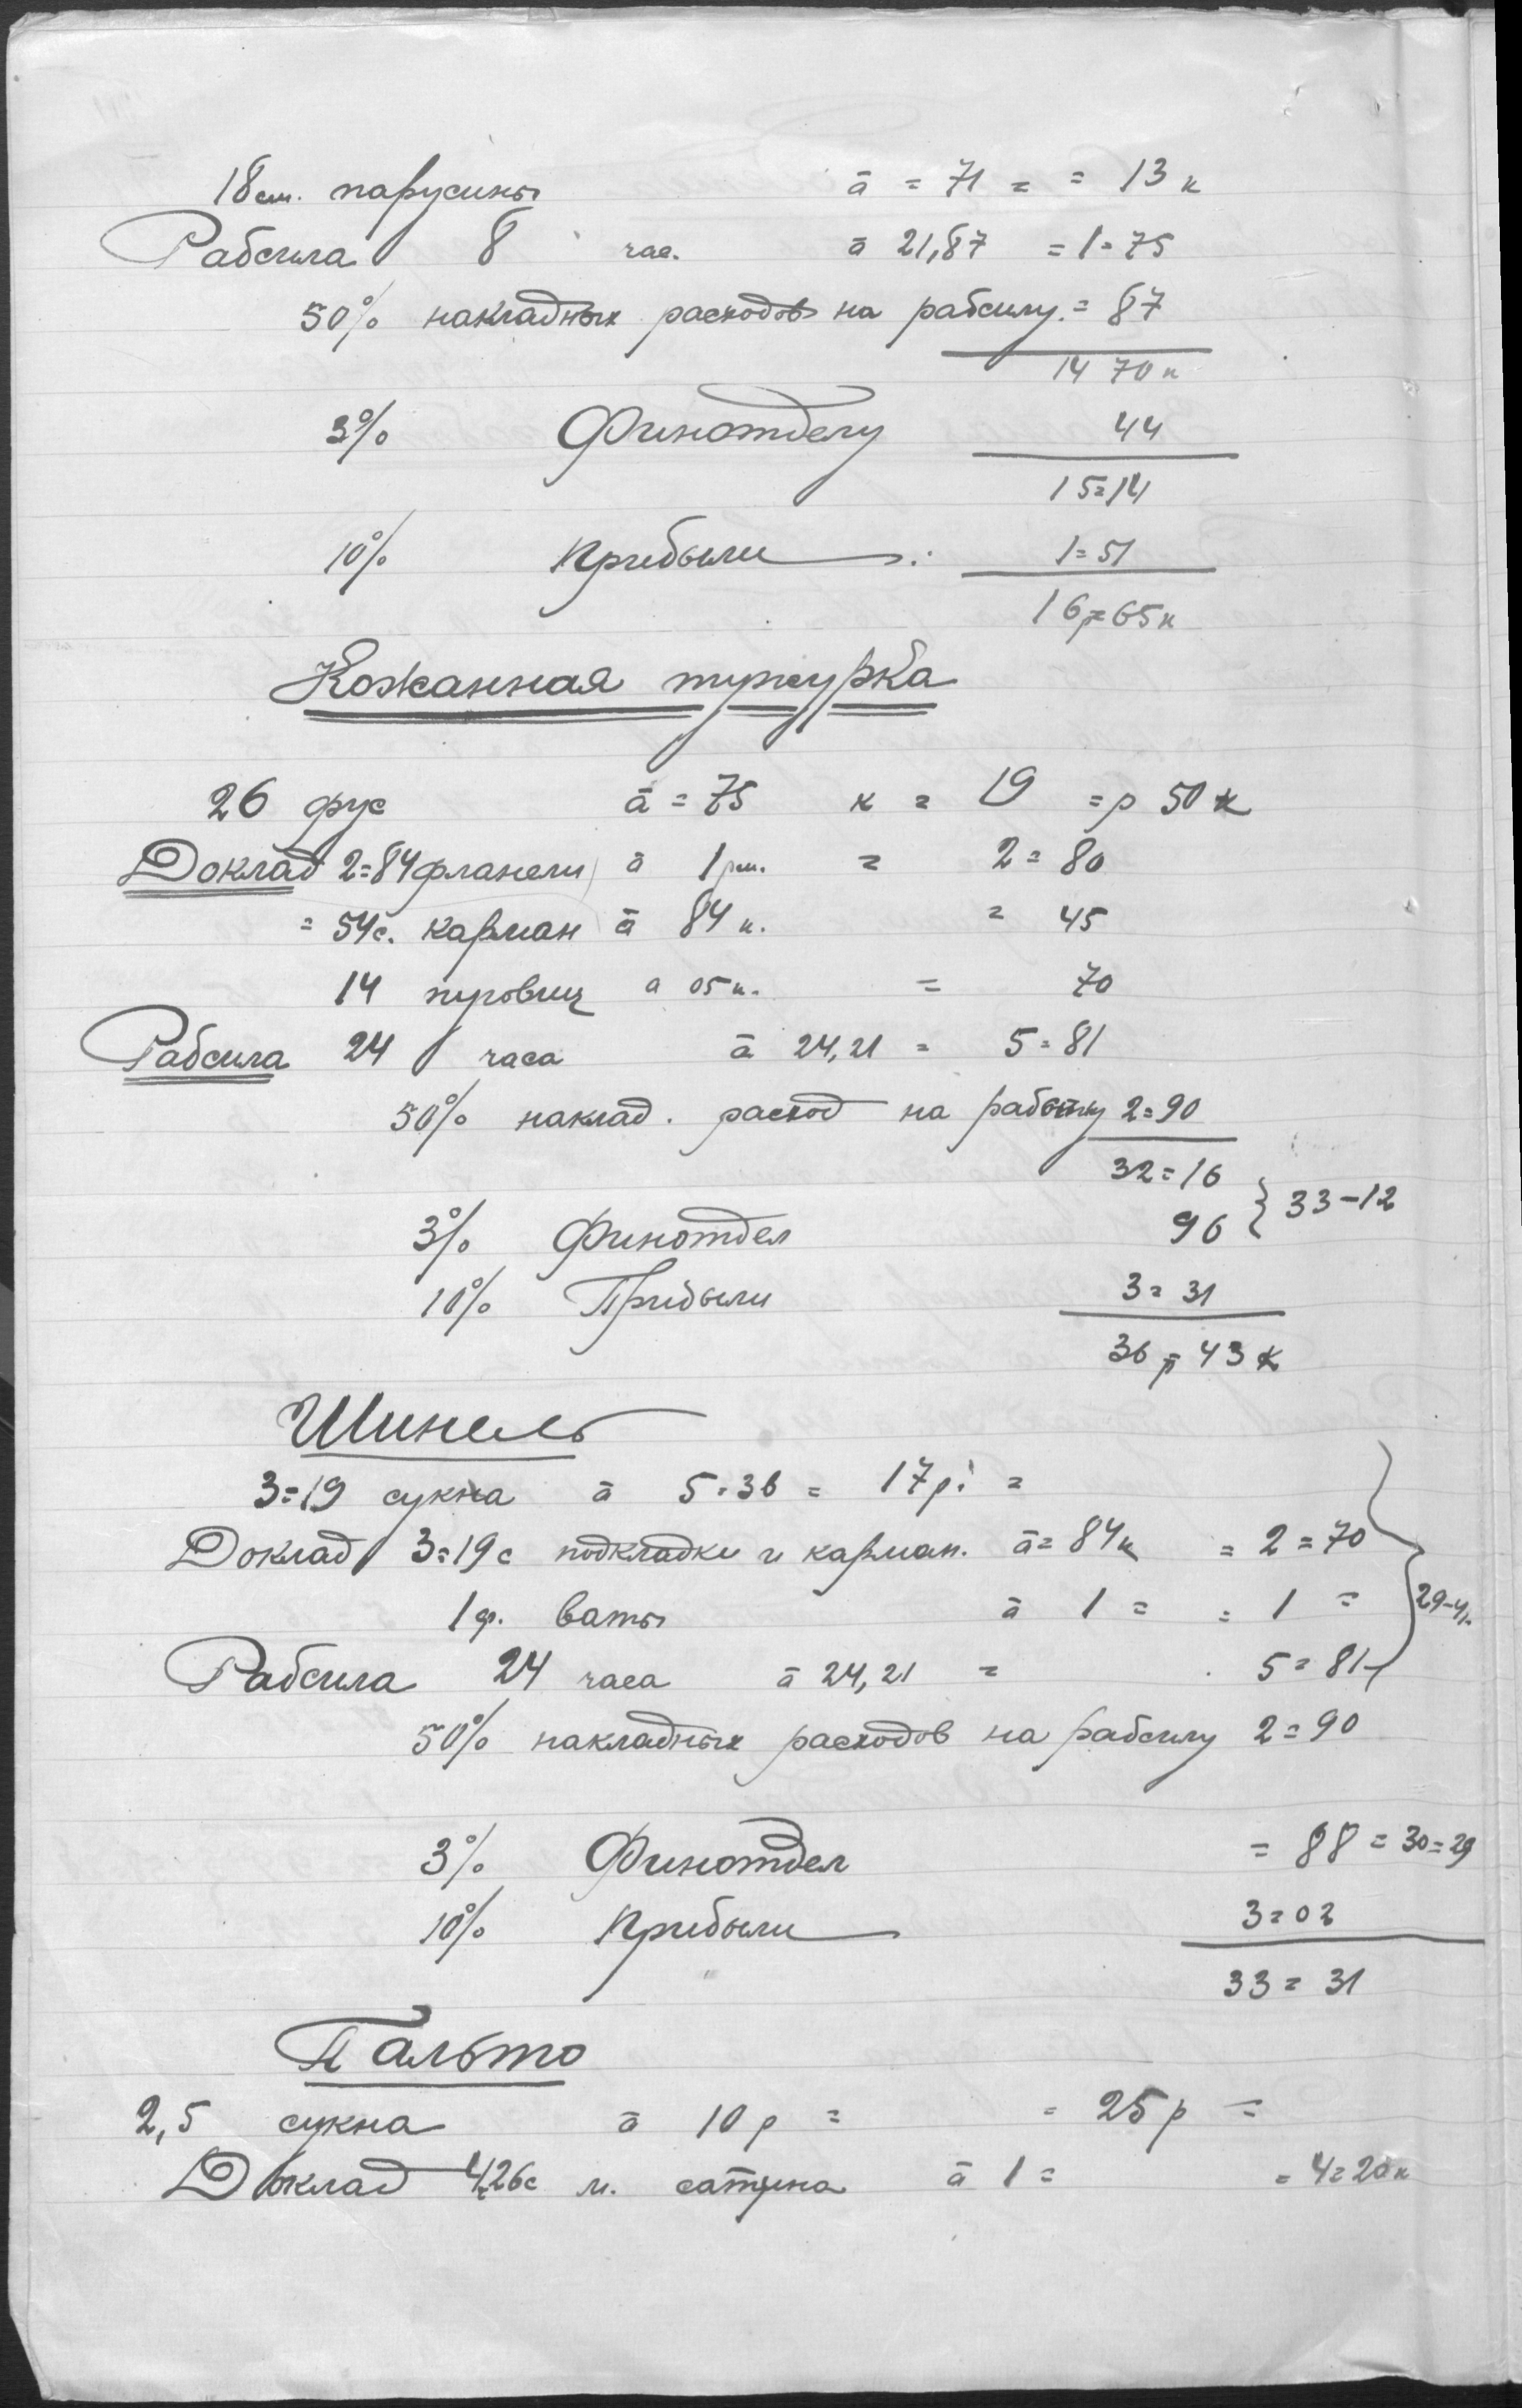 18 см. парусины ā = 71 = = 13 к
Рабсила 8 час. ā 21,87 = 1=75
50% накладных расходов на рабсилу. = 87
14 70 к
3% Финотделу 44
15=14
10% Прибыли : 1=51
16р=65к
Кожанная тужурка
26 фус ā = 75 к = 19 =р 50 к
Доклад 2=84 фланели ā 1 = 2=80
= 54с. карман ā 84 к. = 45
14 пуговиц а 05 к. = 70
Рабсила 24 часа ā 24,21 = 5=81
50% наклад. расход на 2=90
32=16
3% Финотдел 96 } 33-12
10% Прибыли 3=31
36р=43к
Шинель
3=19 сукна ā 5=36 = 17р. =
Доклад 3=19с подкладки и карман. ā=84к = 2=70
1 ф. ваты ā 1 = = 1 = 29-41
Рабсила 24 часа ā 24,21 = 5=81
50% накладных расходов на рабсилу 2=90
3% Финотдел = 88 = 30=29
10% Прибыли 3=02
33=31
Пальто
2,5 сукна ā 10 р = = 25 р =
Доклад 4,26с м. сатина ā 1= = 4=20к